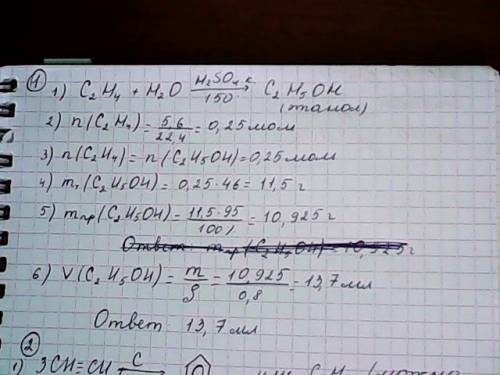 ①
1) C₂H₄ + H₂O H₂SO₄ к. → 150° C₂H₅OH
(этанол)
2) n(C₂H₄) = 5,6/22,4 = 0,25 моль
3) n(C₂H₄) = n(C₂H₅OH) = 0,25 моль
4) mт(C₂H₅OH) = 0,25·46 = 11,5 г
5) mпр(C₂H₅OH) = 11,5·95/100% = 10,925 г
Ответ: mпр(C₂H₅OH) = 10,925 г
6) V(C₂H₅OH) = m/ρ = 10,925/0,8 = 13,7 мл
Ответ: 13,7 мл
②
1) 3CH≡CH C →